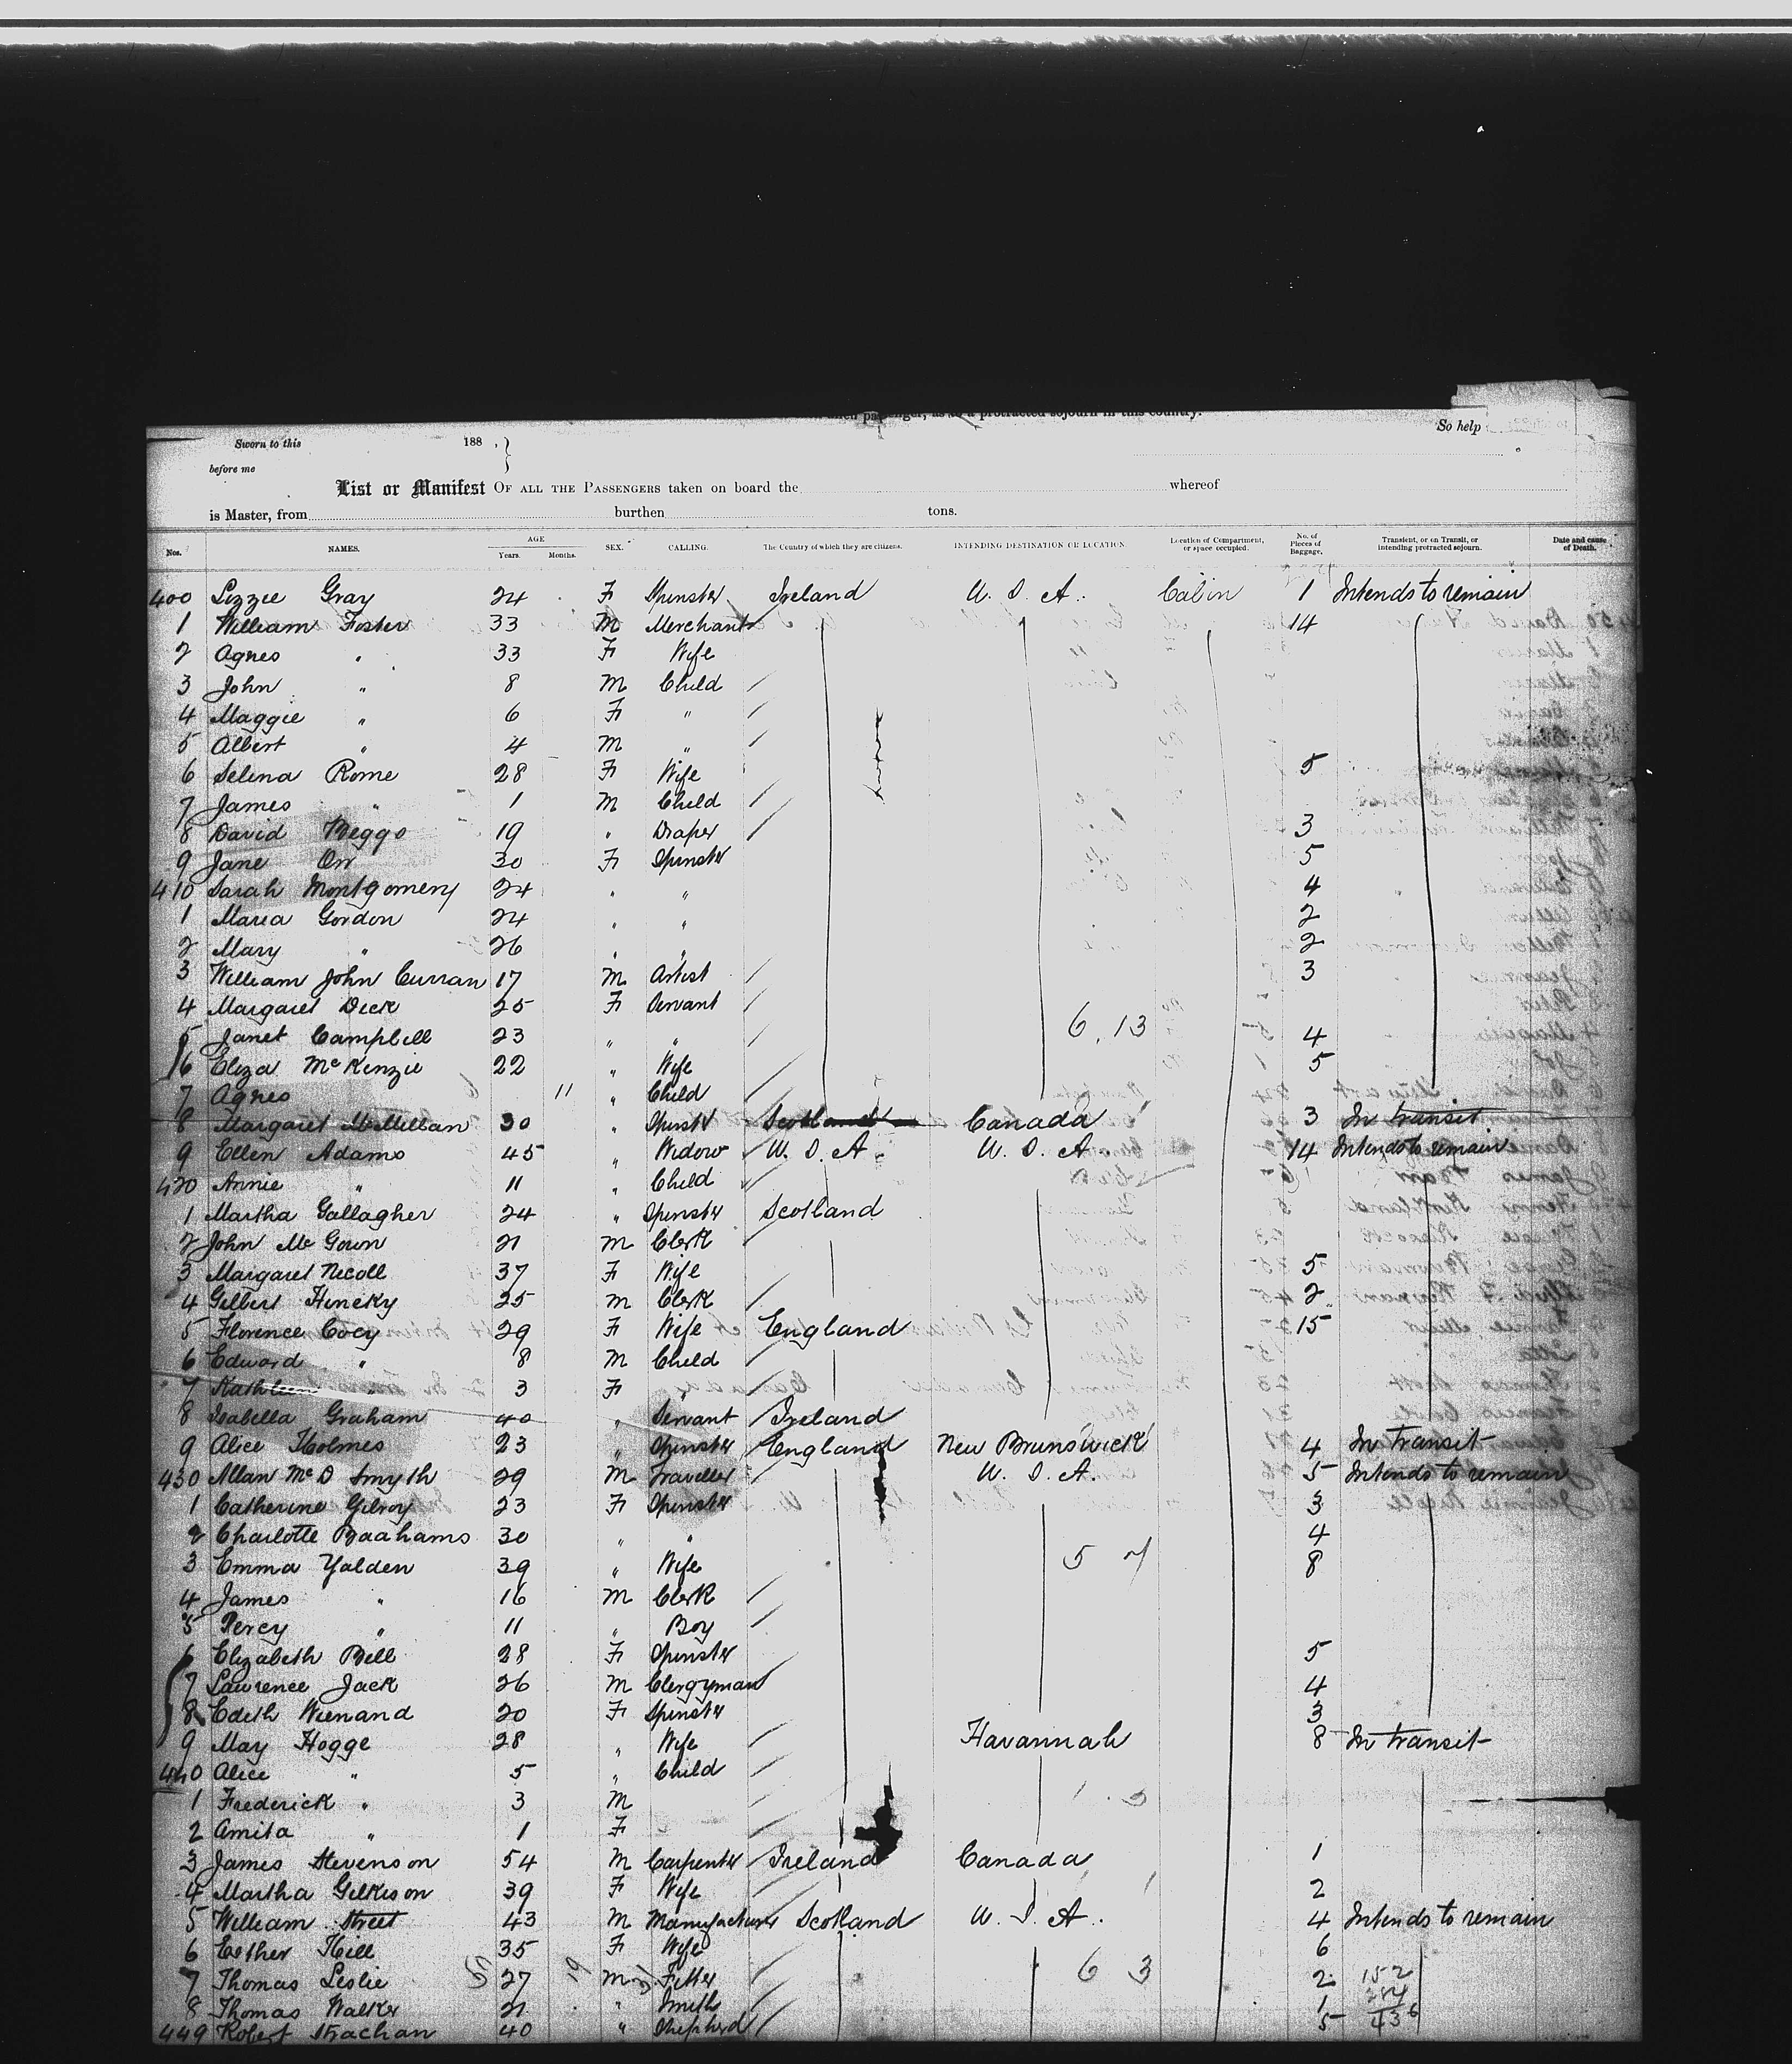 So help
Sworn to this 188 , }
before me
List or Manifest OF ALL THE PASSENGERS taken on board the whereof
is Master, from burthen tons.
Nos. NAMES. AGE Years. Months. SEX. CALLING. The Country of which they are citizens. INTENDING DESTINATION OR LOCATION Location of Compartment, or space occupied. No. of Pieces of Baggage. Transient, or on Transit, or intending protracted sojourn. Date and cause of Death.
400 Lizzie Gray 24 F Spinster Ireland U. S. A. Cabin 1 Intends to remain
1 William Foster 33 M Merchant 14
2 Agnes " 33 F Wife
3 John " 8 M Child
4 Maggie " 6 F "
5 Albert " 4 M "
6 Selena Rome 28 F Wife 5
7 James " 1 M Child
8 David Beggs 19 " Draper 3
9 Jane Orr 30 F Spinster 5
410 Sarah Montgomery 24 " " 4
1 Maria Gordon 24 " " 2
2 Mary " 26 " " 2
3 William John Curran 17 M Artist 3
4 Margaret Dick 25 F Servant
5 Janet Campbell 23 " " 6.13 4
6 Eliza McKenzie 22 " Wife 5
7 Agnes 11 " Child
8 Margaret McMillan 30 " Spinster Scotland Canada 3 In transit
9 Ellen Adams 45 " Widow U. S. A. U. S. A 14 Intends to remain
420 Annie " 11 " Child
1 Martha Gallagher 24 " Spinster Scotland
2 John McGown 21 M Clerk
3 Margaret Nicoll 37 F Wife 5
4 Gilbert 25 M Clerk 2
5 Florence 29 F Wife England 15
6 Edward " 8 M Child
7 Kathleen " 3 F "
8 Isabella Graham 40 " Servant Ireland
9 Alice Holmes 23 " Spinster England New Brunswick 4 In transit
430 Allan McD Smyth 29 M Traveller U. S. A. 5 Intends to remain
1 Catherine Gilroy 23 F Spinster 3
2 Charlotte 30 " " 4
3 Emma Yalden 39 " Wife 5 7 8
4 James " 16 M Clerk
5 Percy " 11 " Boy
6 Elizabeth Bell 28 F Spinster 5
7 Lawrence Jack 26 M Clergyman 4
8 Edith Wienand 20 F Spinster 3
9 May Hogge 28 " Wife Havannah 8 In transit
440 Alice " 5 " Child
1 Frederick " 3 M
2 Amita " 1 F
3 James Stevenson 54 M Carpenter Ireland Canada 1
4 Martha Gilkison 39 F Wife 2
5 William Street 43 M Manufacturer Scotland U. S. A. 4 Intends to remain
6 Esther Hill 35 F Wife 6
7 Thomas Leslie 27 M Fitter 6 3 2 152
8 Thomas Walker 21 " Smith 1 284
449 Robert Strachan 40 " Shepherd 5 436